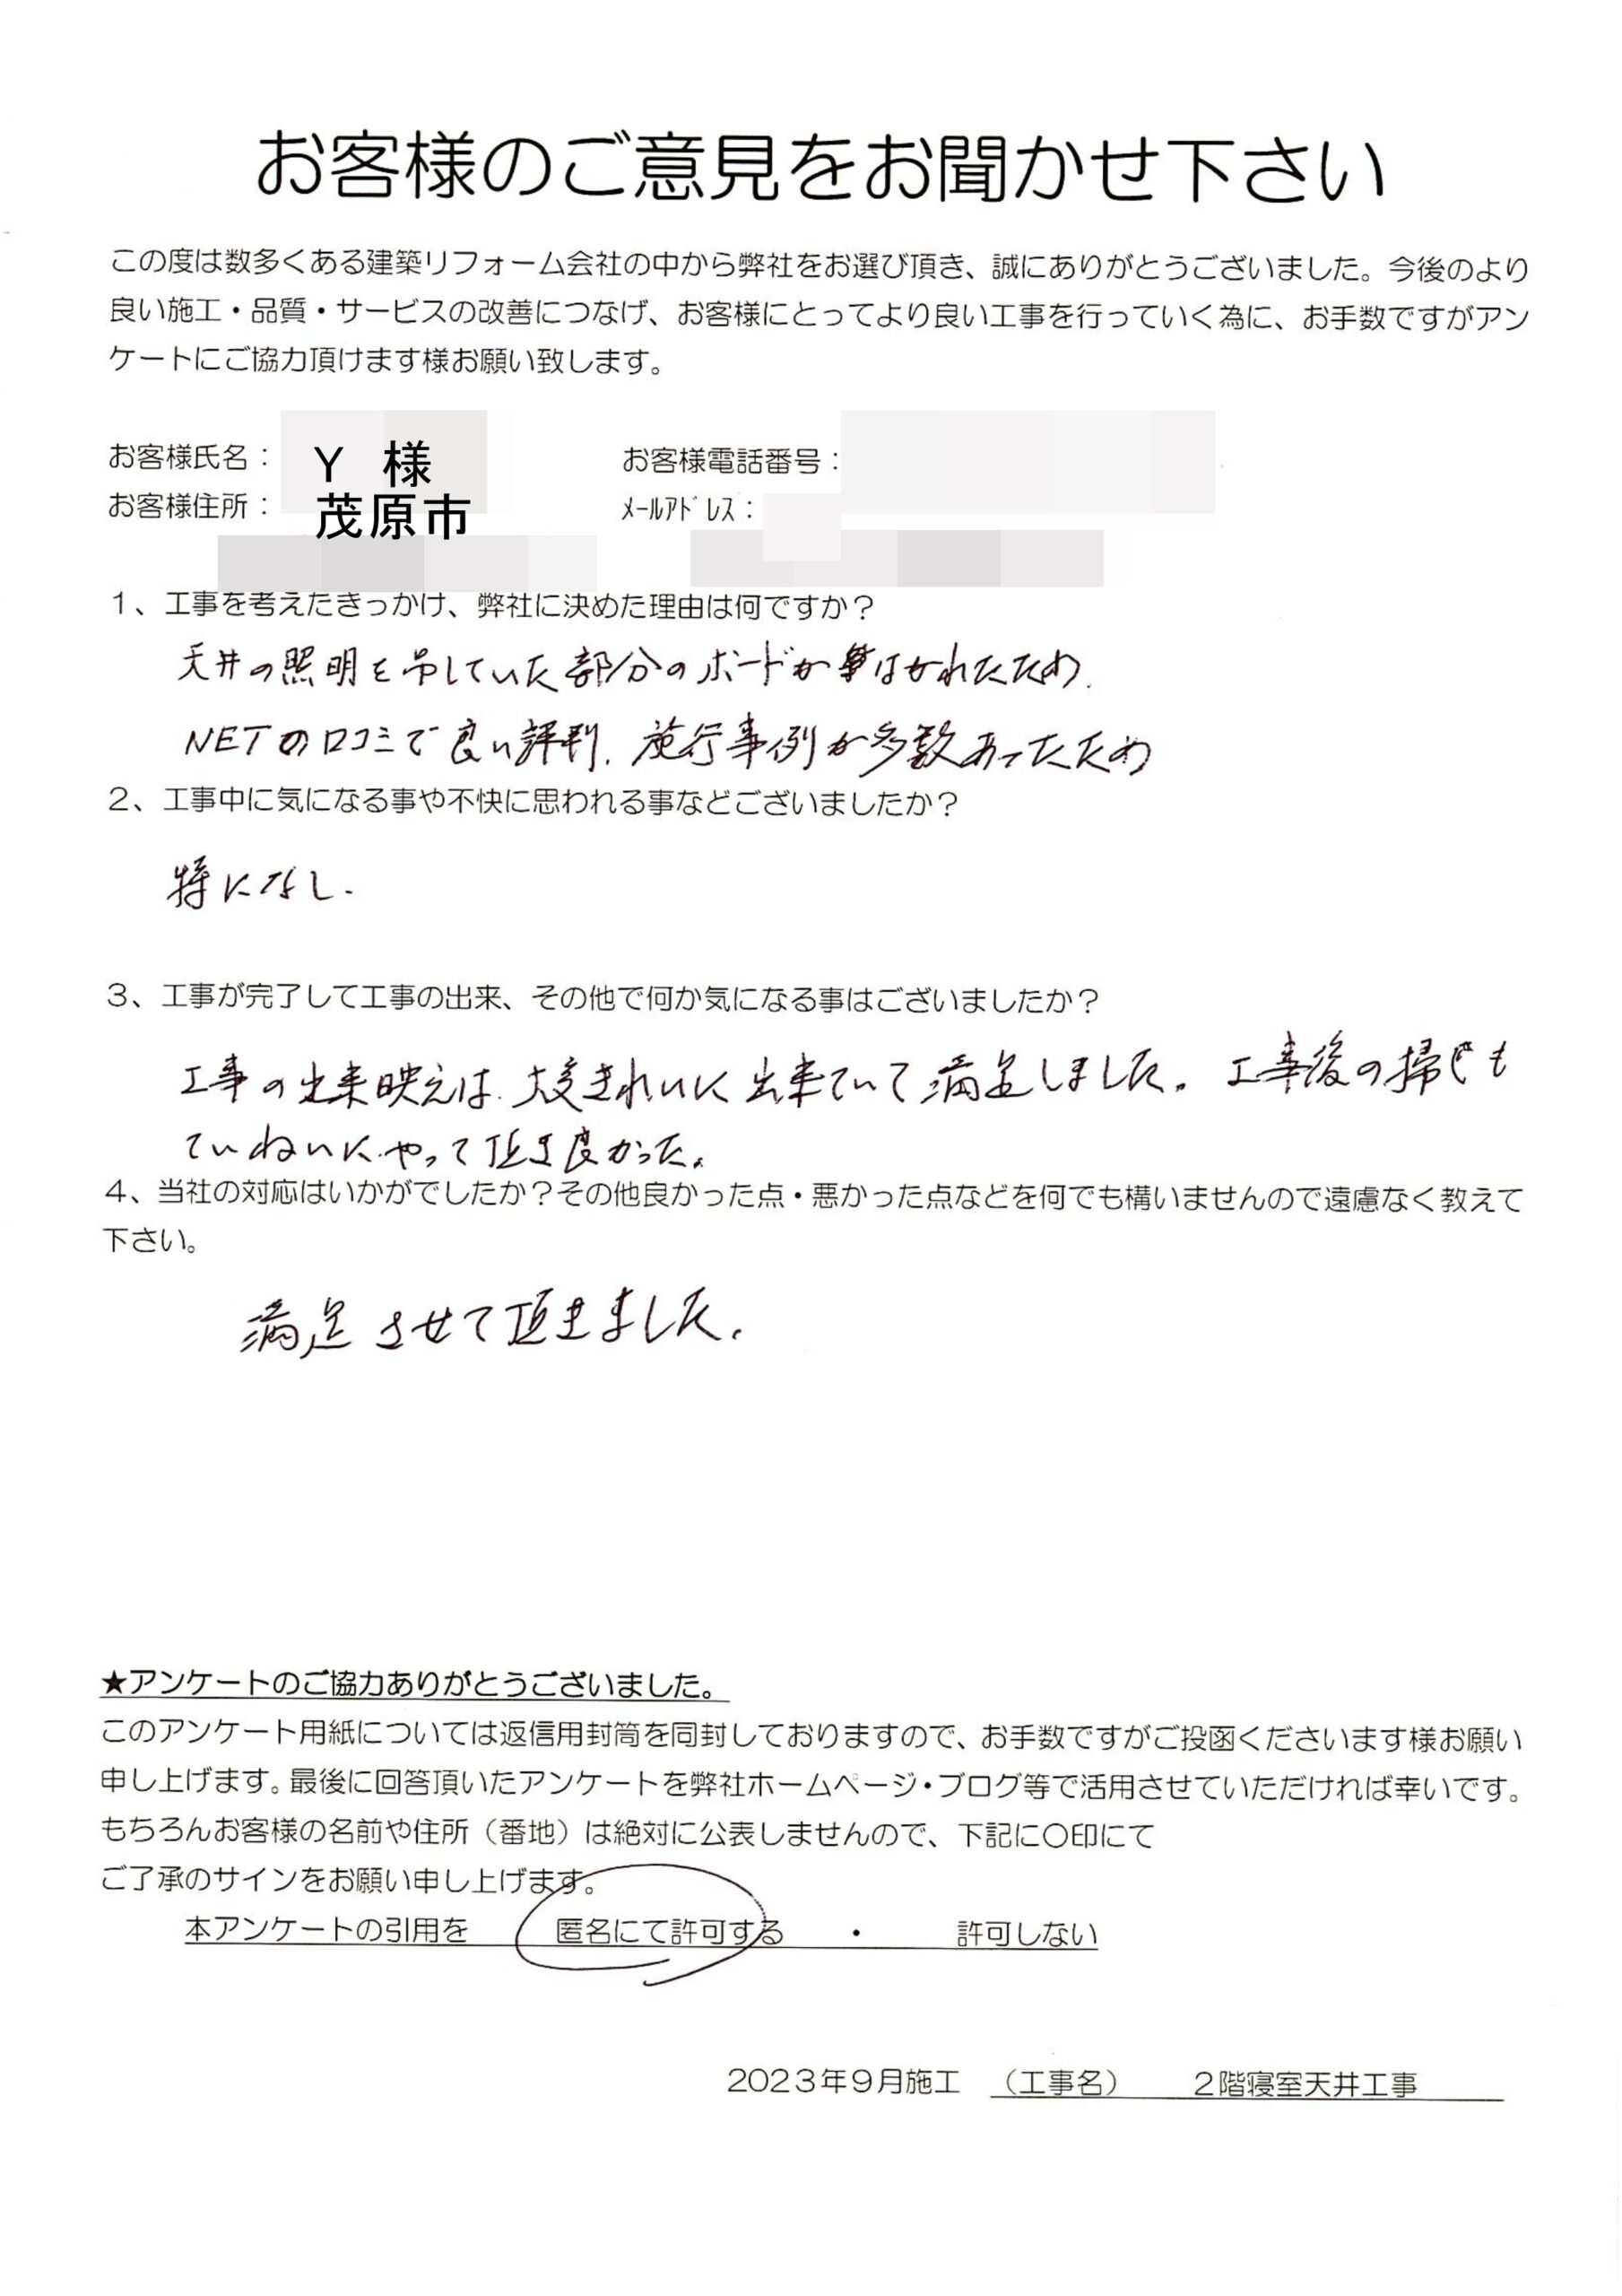 お客様のご意見をお聞かせ下さい
この度は数多くある建築リフォーム会社の中から弊社をお選び頂き、誠にありがとうございました。今後のより
良い施工・品質・サービスの改善につなげ、お客様にとってより良い工事を行っていく為に、お手数ですがアン
ケートにご協力頂けます様お願い致します。
お客様氏名： Y 様 お客様電話番号：
お客様住所： 茂原市 ﾒｰﾙｱﾄﾞﾚｽ：
1、工事を考えたきっかけ、弊社に決めた理由は何ですか？
天井の照明を吊していた部分のボードが はがれたため.
NETの口コミで良い評判. 施行事例が多数あったため
2、工事中に気になる事や不快に思われる事などございましたか？
特になし.
3、工事が完了して工事の出来、その他で何か気になる事はございましたか？
工事の出来映えは.大変きれいに出来ていて満足しました。工事後の掃じも
ていねいにやって頂き良かった。
4、当社の対応はいかがでしたか？その他良かった点・悪かった点などを何でも構いませんので遠慮なく教えて
下さい。
満足させて頂きました。
★アンケートのご協力ありがとうございました。
このアンケート用紙については返信用封筒を同封しておりますので、お手数ですがご投函くださいます様お願い
申し上げます。最後に回答頂いたアンケートを弊社ホームページ・ブログ等で活用させていただければ幸いです。
もちろんお客様の名前や住所（番地）は絶対に公表しませんので、下記に〇印にて
ご了承のサインをお願い申し上げます。
本アンケートの引用を 匿名にて許可する ・ 許可しない
2023年9月施工 （工事名） 2階寝室天井工事